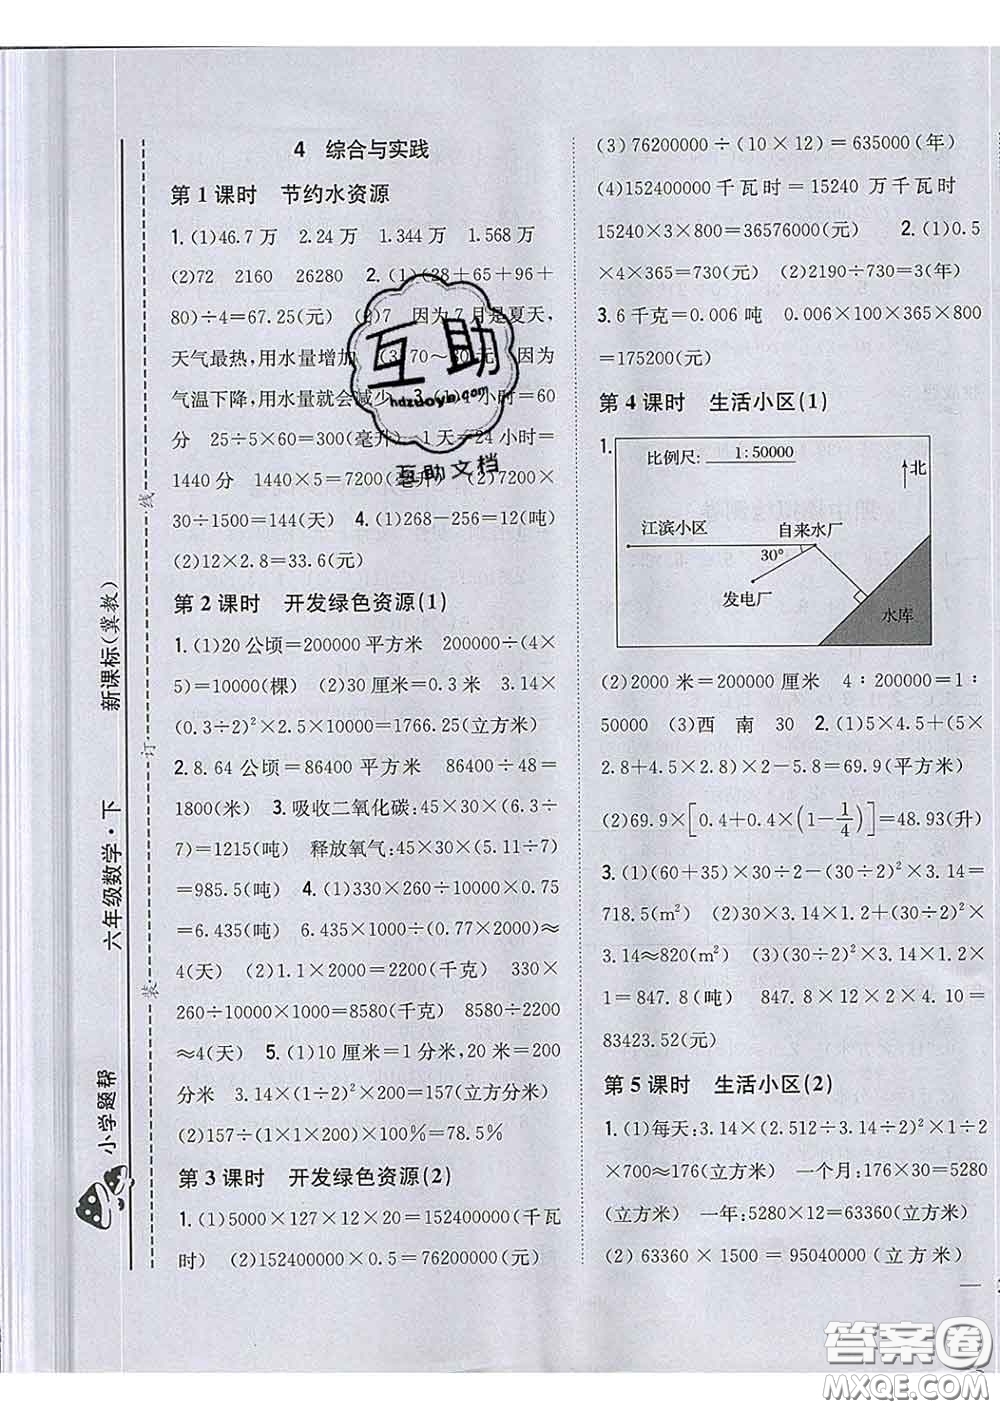 4 综合与实践
第1课时 节约水资源
1.(1)46.7万 2.24万 1.344万 1.568万
(2)72 2160 26280 2.(1)(28+65+96+
80)÷4=67.25(元) (2)7 因为7月是夏天,
天气最热,用水量增加 (3)70～80元 因为
气温下降,用水量就会减少 3.(1)1小时=60
分 25÷5×60=300(毫升) 1天=24小时=
1440分 1440×5=7200(毫升) (2)7200×
30÷1500=144(天) 4.(1)268-256=12(吨)
(2)12×2.8=33.6(元)
第2课时 开发绿色资源(1)
1.(1)20公顷=200000平方米 200000÷(4×
5)=10000(棵) (2)30厘米=0.3米 3.14×
(0.3÷2)²×2.5×10000=1766.25(立方米)
2.8.64公顷=86400平方米 86400÷48=
1800(米) 3.吸收二氧化碳:45×30×(6.3÷
7)=1215(吨) 释放氧气:45×30×(5.11÷7)
=985.5(吨) 4.(1)330×260÷10000×0.75
=6.435(吨) 6.435×1000÷(2200×0.75)≈
4(天) (2)1.1×2000=2200(千克) 330×
260÷10000×1000=8580(千克) 8580÷2200
≈4(天) 5.(1)10厘米=1分米,20米=200
分米 3.14×(1÷2)²×200=157(立方分米)
(2)157÷(1×1×200)×100%=78.5%
第3课时 开发绿色资源(2)
1.(1)5000×127×12×20=152400000(千瓦
时) (2)152400000×0.5=76200000(元)
(3)76200000÷(10×12)=635000(年)
(4)152400000千瓦时=15240万千瓦时
15240×3×800=36576000(元) 2.(1)0.5
×4×365=730(元) (2)2190÷730=3(年)
3.6千克=0.006吨 0.006×100×365×800
=175200(元)
第4课时 生活小区(1)
1.
比例尺: 1:50000
北
江滨小区
自来水厂
30°
发电厂
水库
(2)2000米=200000厘米 4:200000=1:
50000 (3)西 南 30 2.(1)5×4.5+(5×
2.8+4.5×2.8)×2-5.8=69.9(平方米)
(2)69.9×[0.4+0.4×(1-1/4)]=48.93(升)
3.(1)(60+35)×30÷2-(30÷2)²×3.14=
718.5(m²) (2)30×3.14×1.2+(30÷2)²×
3.14≈820(m²) (3)(30÷2)²×3.14×1.2×
1=847.8(吨) 847.8×12×2×4.10=
83423.52(元)
第5课时 生活小区(2)
1.(1)每天:3.14×(2.512÷3.14÷2)²×1÷2
×700≈176(立方米) 一个月:176×30=5280
(立方米) 一年:5280×12=63360(立方米)
(2)63360×1500=95040000(立方米)
小学题帮 六年级数学·下 新课标(冀教)
装 订 线
互助
hdzuoye.com
互助文档
答案圈
MXQE.COM